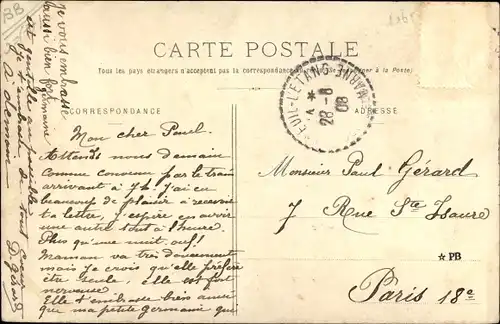 CARTE POSTALE
Tous les pays étrangers n'acceptent pas la correspondance
à la Poste)
CORRESPONDANCE
ADRESSE
28 -8
08
Mon cher Paul.
Attends nous demain
comme convenu par le train
arrivant à 7h. J'ai eu
beaucoup de plaisir à recevoir
ta lettre, j'espère en avoir
une autre tout à l'heure.
Plus qu'une nuit ouf!
Maman va très doucement
mais je crois qu'elle préfère
être seule, elle est fort
nerveuse.
Elle t'embrasse bien ainsi
que ma petite Germaine que
est gentille au possible
Je t'embrasse de tout cœur
A demain
D. Gérard
je vous embrasse
aussi bien
Germaine
BB
Monsieur Paul Gérard
7 Rue Ste Isaure
☆ PB
Paris 18e